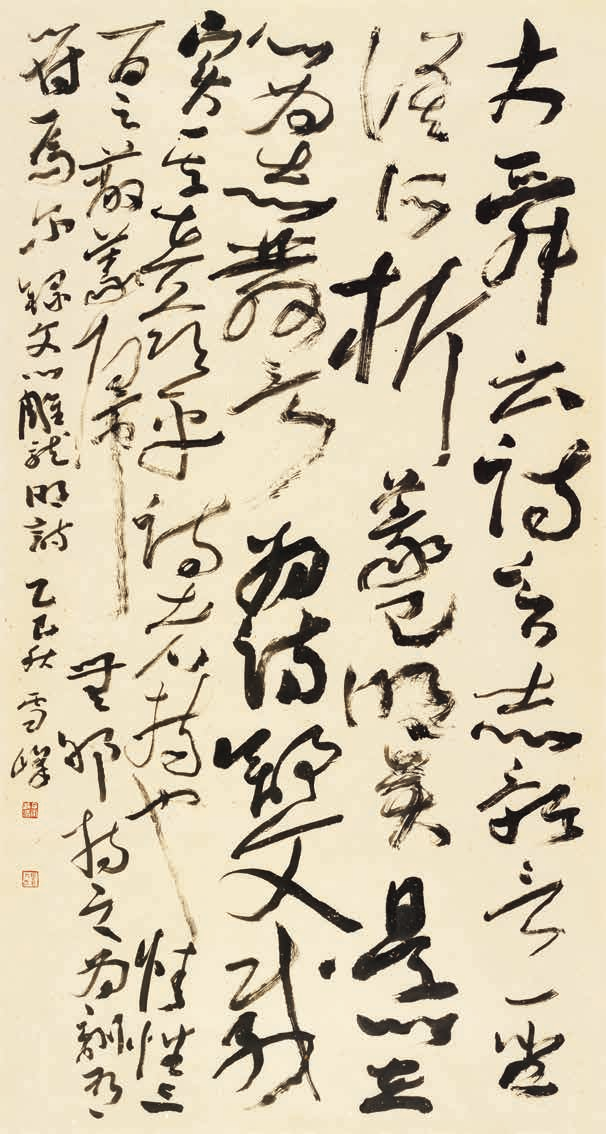 大舜云詩言志歌言聖
謨所析義已明矣是以在
心為志發言為詩舒文載
實其在茲乎詩者持也情性三
百之蔽義歸無邪持之為訓有
符焉尔錄文心雕龍明詩乙巳秋雪峰